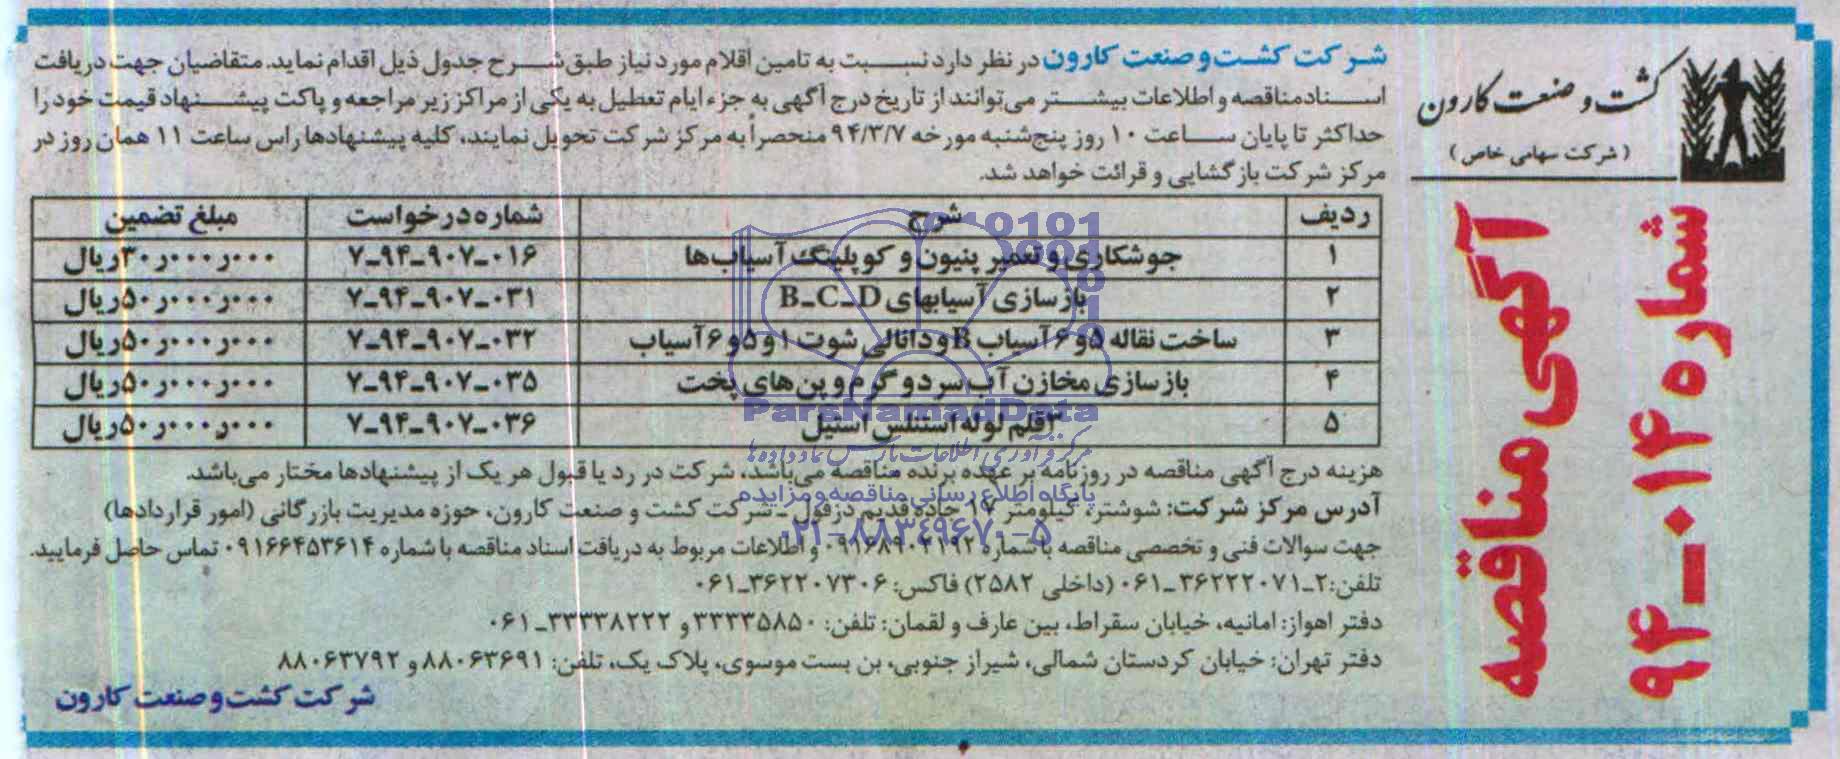 کشت و صنعت کارون
( شرکت سهامی خاص )
آگهی مناقصه
شماره ۰۱۴-۹۴
شرکت کشت و صنعت کارون در نظر دارد نسبت به تامین اقلام مورد نیاز طبق شرح جدول ذیل اقدام نماید. متقاضیان جهت دریافت
اسناد مناقصه و اطلاعات بیشتر می‌توانند از تاریخ درج آگهی به جزء ایام تعطیل به یکی از مراکز زیر مراجعه و پاکت پیشنهاد قیمت خود را
حداکثر تا پایان ساعت ۱۰ روز پنج‌شنبه مورخه ۹۴/۳/۷ منحصراً به مرکز شرکت تحویل نمایند، کلیه پیشنهادها راس ساعت ۱۱ همان روز در
مرکز شرکت بازگشایی و قرائت خواهد شد.
ردیف شرح شماره درخواست مبلغ تضمین
۱ جوشکاری و تعمیر پنیون و کوپلینگ آسیاب‌ها ۷-۹۴-۹۰۷-۰۱۶ ۳۰ر۰۰۰ر۰۰۰ ریال
۲ بازسازی آسیابهای B-C-D ۷-۹۴-۹۰۷-۰۳۱ ۵۰ر۰۰۰ر۰۰۰ ریال
۳ ساخت نقاله ۵ و ۶ آسیاب B و دانالی شوت ۱ و ۵ و ۶ آسیاب ۷-۹۴-۹۰۷-۰۳۲ ۵۰ر۰۰۰ر۰۰۰ ریال
۴ بازسازی مخازن آب سرد و گرم و پن‌های پخت ۷-۹۴-۹۰۷-۰۳۵ ۵۰ر۰۰۰ر۰۰۰ ریال
۵ ۳ قلم لوله استنلس استیل ۷-۹۴-۹۰۷-۰۳۶ ۵۰ر۰۰۰ر۰۰۰ ریال
هزینه درج آگهی مناقصه در روزنامه بر عهده برنده مناقصه می‌باشد، شرکت در رد یا قبول هر یک از پیشنهادها مختار می‌باشد.
آدرس مرکز شرکت: شوشتر، کیلومتر ۱۷ جاده قدیم دزفول - شرکت کشت و صنعت کارون، حوزه مدیریت بازرگانی (امور قراردادها)
جهت سوالات فنی و تخصصی مناقصه با شماره ۰۹۱۶۸۹۰۲۱۹۲ و اطلاعات مربوط به دریافت اسناد مناقصه با شماره ۰۹۱۶۶۴۵۳۶۱۴ تماس حاصل فرمایید.
تلفن: ۲-۳۶۲۲۲۰۷۱-۰۶۱ (داخلی ۲۵۸۲) فاکس: ۳۶۲۲۰۷۳۰۶-۰۶۱
دفتر اهواز: امانیه، خیابان سقراط، بین عارف و لقمان: تلفن: ۳۳۳۳۵۸۵۰ و ۳۳۳۳۸۲۲۲-۰۶۱
دفتر تهران: خیابان کردستان شمالی، شیراز جنوبی، بن بست موسوی، پلاک یک، تلفن: ۸۸۰۶۳۶۹۱ و ۸۸۰۶۳۷۹۲
شرکت کشت و صنعت کارون
ParsNamadData
مرکز فرآوری اطلاعات پارس نماد داده ها
پایگاه اطلاع رسانی مناقصه و مزایده
۰۲۱-۸۸۳۴۹۶۷۰-۵